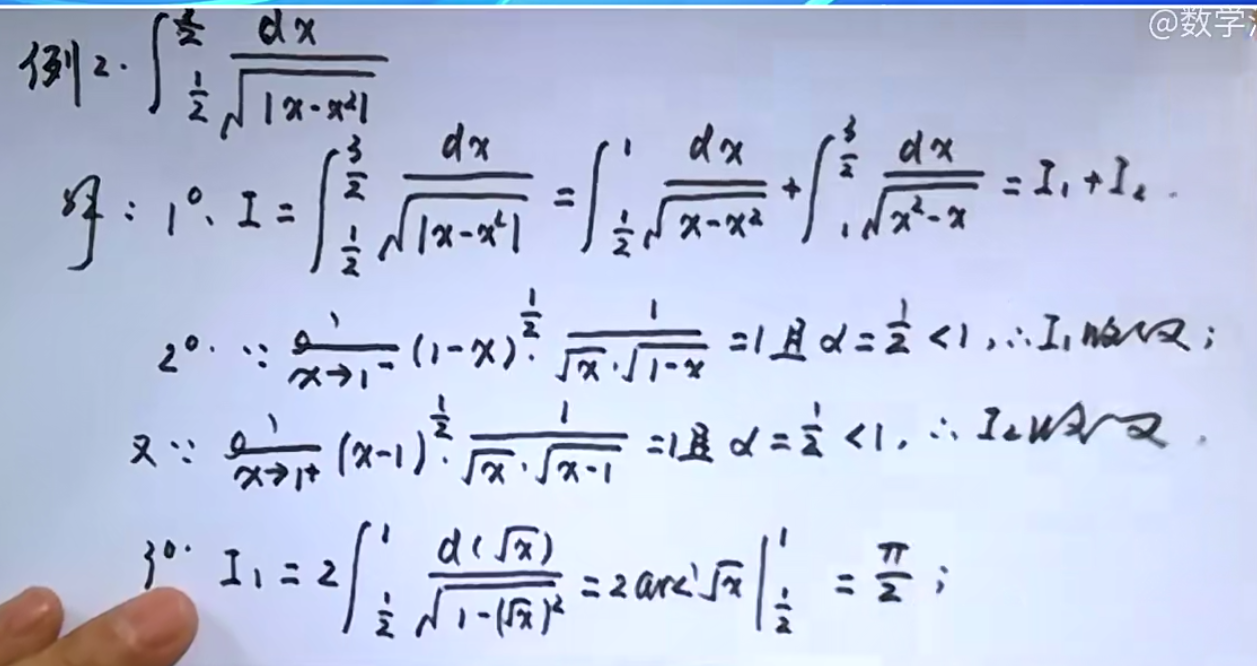 @数学
例2. ∫_{1/2}^{3/2} dx/√|x-x²|
解: 1°. I = ∫_{1/2}^{3/2} dx/√|x-x²| = ∫_{1/2}^{1} dx/√(x-x²) + ∫_{1}^{3/2} dx/√(x²-x) = I₁ + I₂.
2°. ∵ lim_{x→1⁻} (1-x)^{1/2} · 1/(√x·√(1-x)) = 1 且 α = 1/2 < 1, ∴ I₁ 收敛;
又∵ lim_{x→1⁺} (x-1)^{1/2} · 1/(√x·√(x-1)) = 1 且 α = 1/2 < 1, ∴ I₂ 收敛.
3°. I₁ = 2∫_{1/2}^{1} d(√x)/√(1-(√x)²) = 2 arc √x |_{1/2}^{1} = π/2;